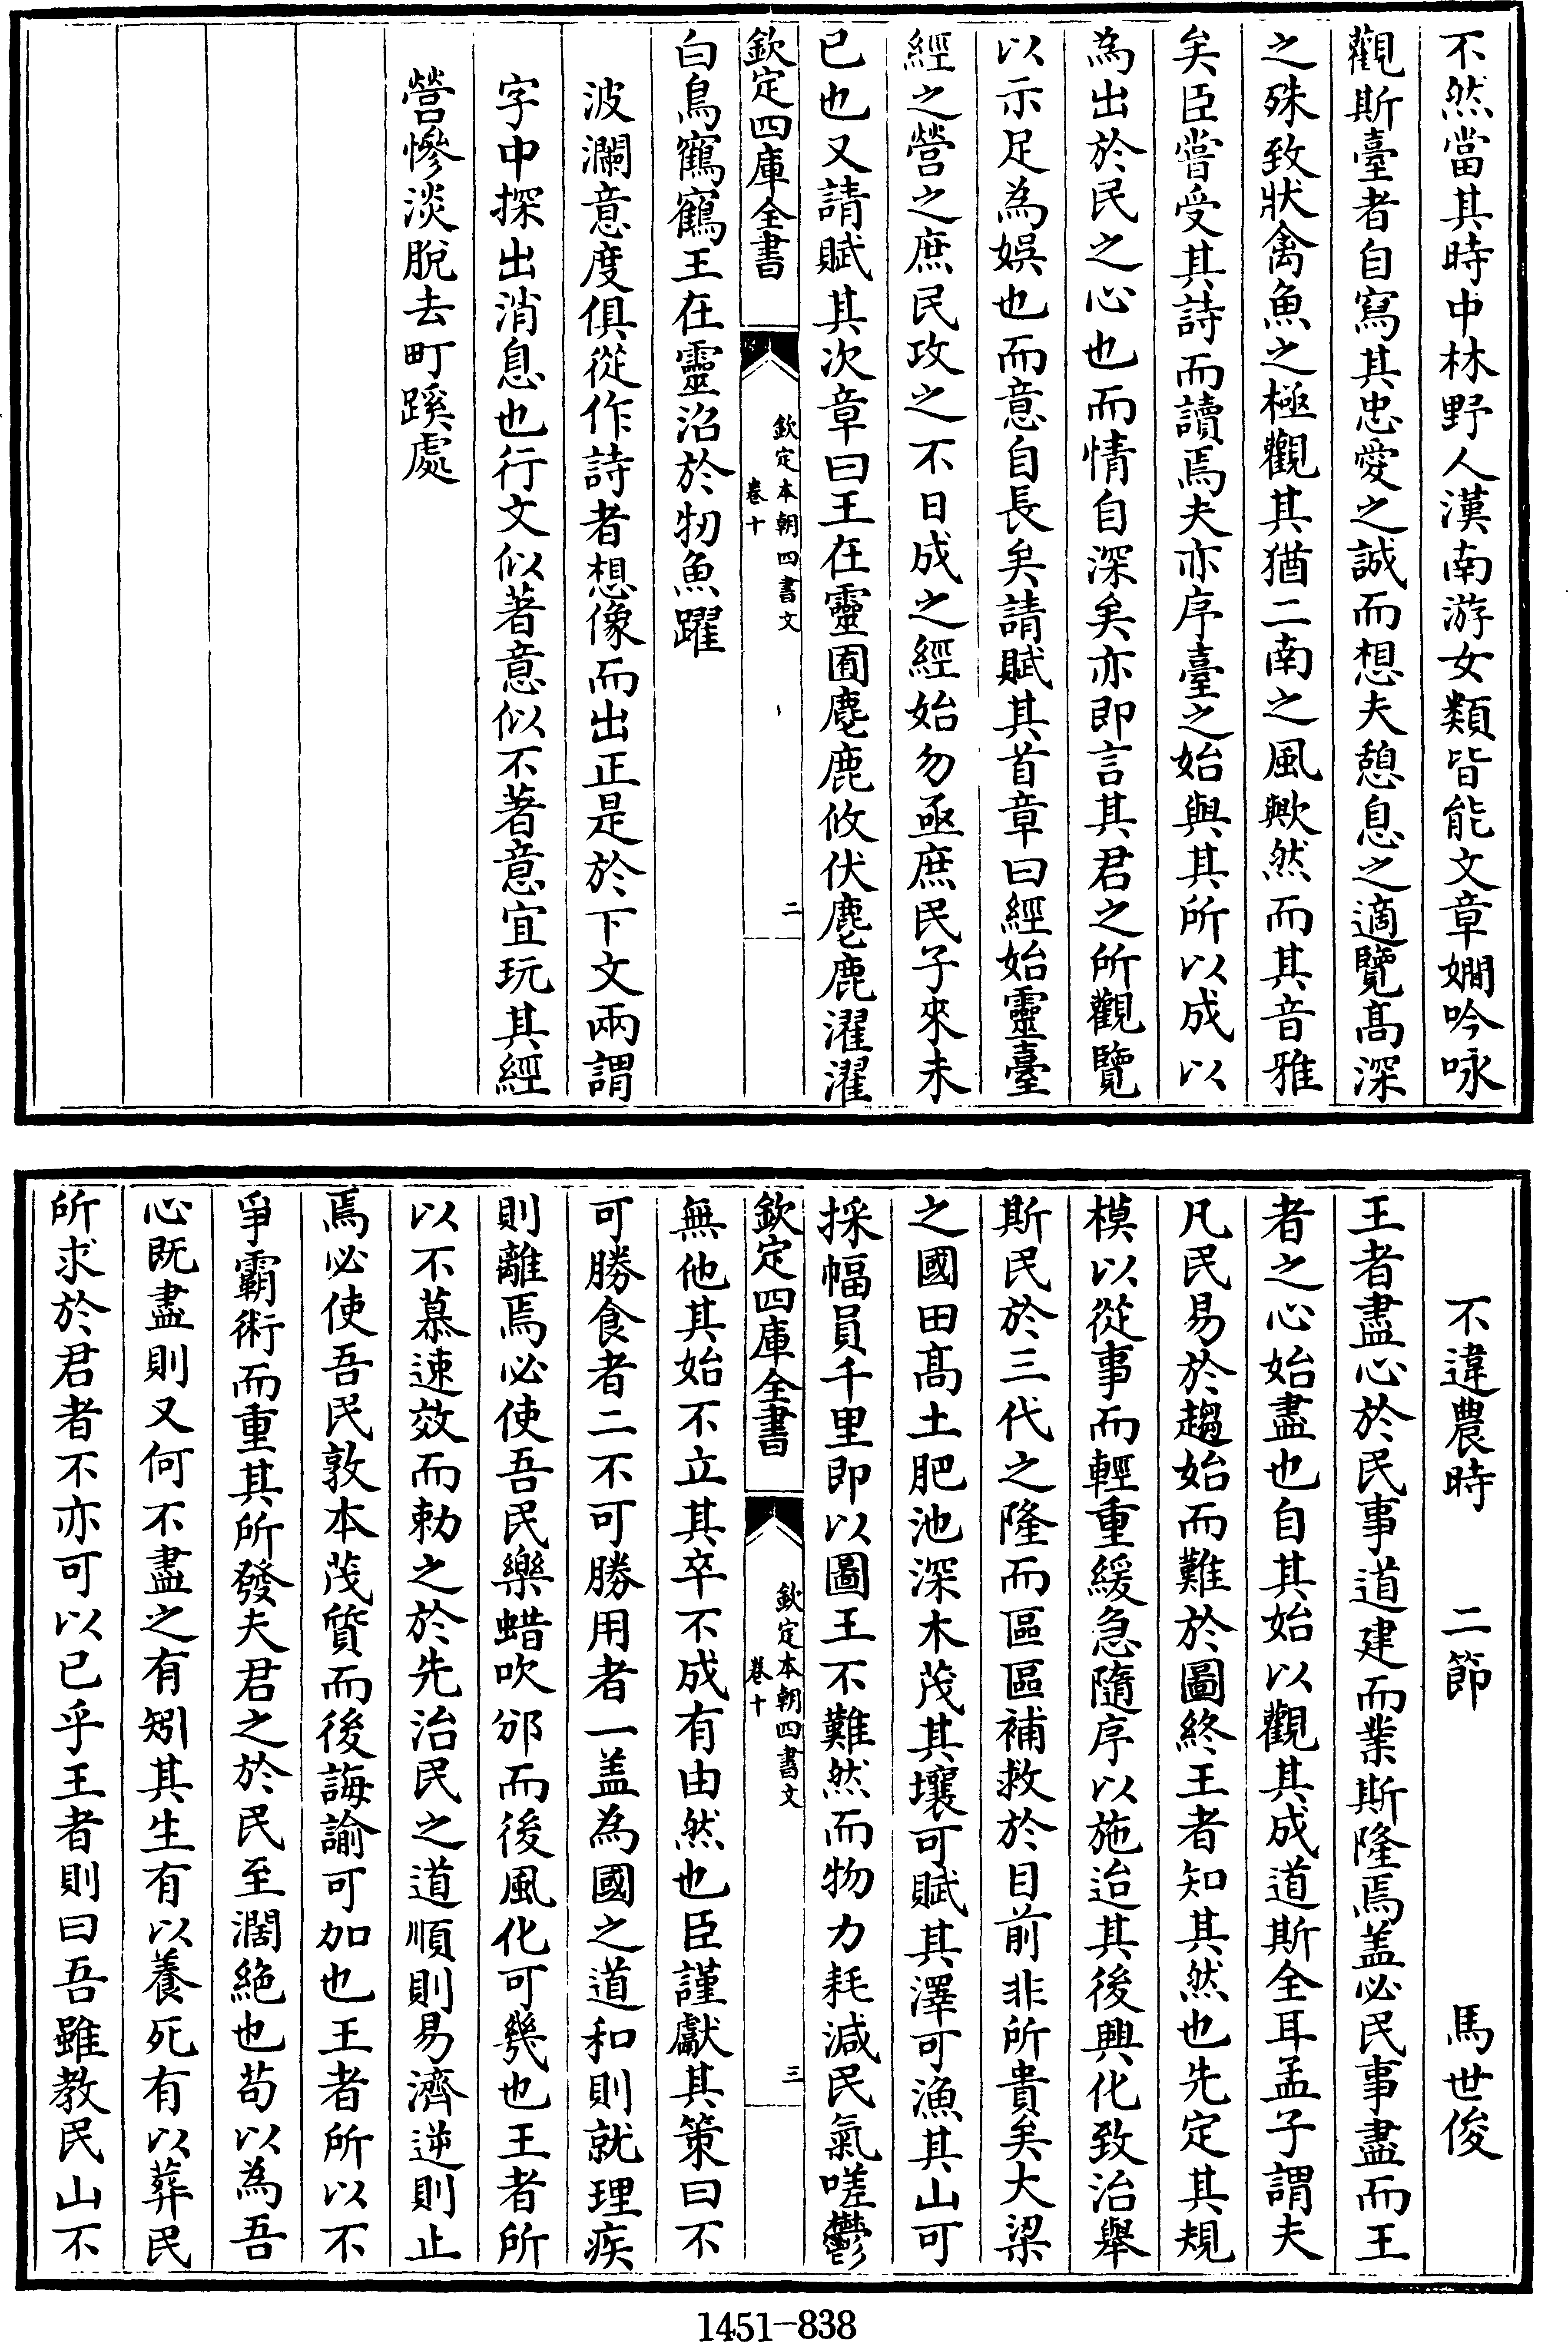 不然當其時中林野人漢南游女類皆能文章嫺吟咏
觀斯臺者自寫其忠愛之誠而想夫憩息之適覽髙深
之殊致狀禽魚之極觀其猶二南之風歟然而其音雅
矣臣嘗受其詩而讀焉夫亦序臺之始與其所以成以
為出於民之心也而情自深矣亦即言其君之所觀覽
以示足為娛也而意自長矣請賦其首章曰經始靈臺
經之營之庶民攻之不日成之經始勿亟庶民子來未
已也又請賦其次章曰王在靈囿麀鹿攸伏麀鹿濯濯
欽定四庫全書
欽定本朝四書文
卷十
二
白鳥鶴鶴王在靈沼於牣魚躍
波瀾意度俱從作詩者想像而出正是於下文兩謂
字中探出消息也行文似著意似不著意宜玩其經
營慘淡脫去町蹊處
不違農時 二節 馬世俊
王者盡心於民事道建而業斯隆焉盖必民事盡而王
者之心始盡也自其始以觀其成道斯全耳孟子謂夫
凡民易於趨始而難於圖終王者知其然也先定其規
模以從事而輕重緩急隨序以施迨其後興化致治舉
斯民於三代之隆而區區補救於目前非所貴矣大梁
之國田髙土肥池深木茂其壤可賦其澤可漁其山可
採幅員千里即以圖王不難然而物力耗減民氣嗟鬱
欽定四庫全書
欽定本朝四書文
卷十
三
無他其始不立其卒不成有由然也臣謹獻其策曰不
可勝食者二不可勝用者一盖為國之道和則就理疾
則離焉必使吾民樂蜡吹邠而後風化可幾也王者所
以不慕速效而勅之於先治民之道順則易濟逆則止
焉必使吾民敦本茂質而後誨諭可加也王者所以不
爭霸術而重其所發夫君之於民至濶絶也苟以為吾
心既盡則又何不盡之有矧其生有以養死有以葬民
所求於君者不亦可以已乎王者則曰吾雖教民山不
1451-838